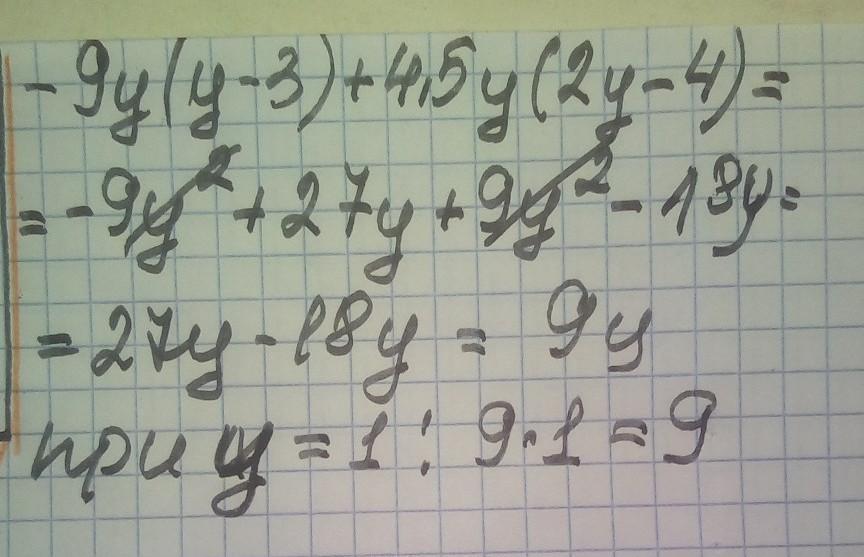 - 9y(y-3)+4,5y(2y-4)=
= -9y² + 27y + 9y² - 18y=
= 27y - 18y = 9y
при y = 1 : 9·1 = 9